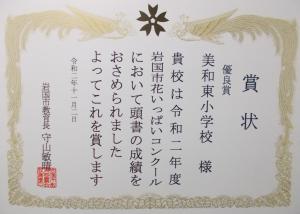 賞状
優良賞
美和東小学校 様
貴校は令和二年度
岩国市花いっぱいコンクール
において頭書の成績を
おさめられました
よってこれを賞します
令和二年十一月二日
岩国市教育長 守山敏晴